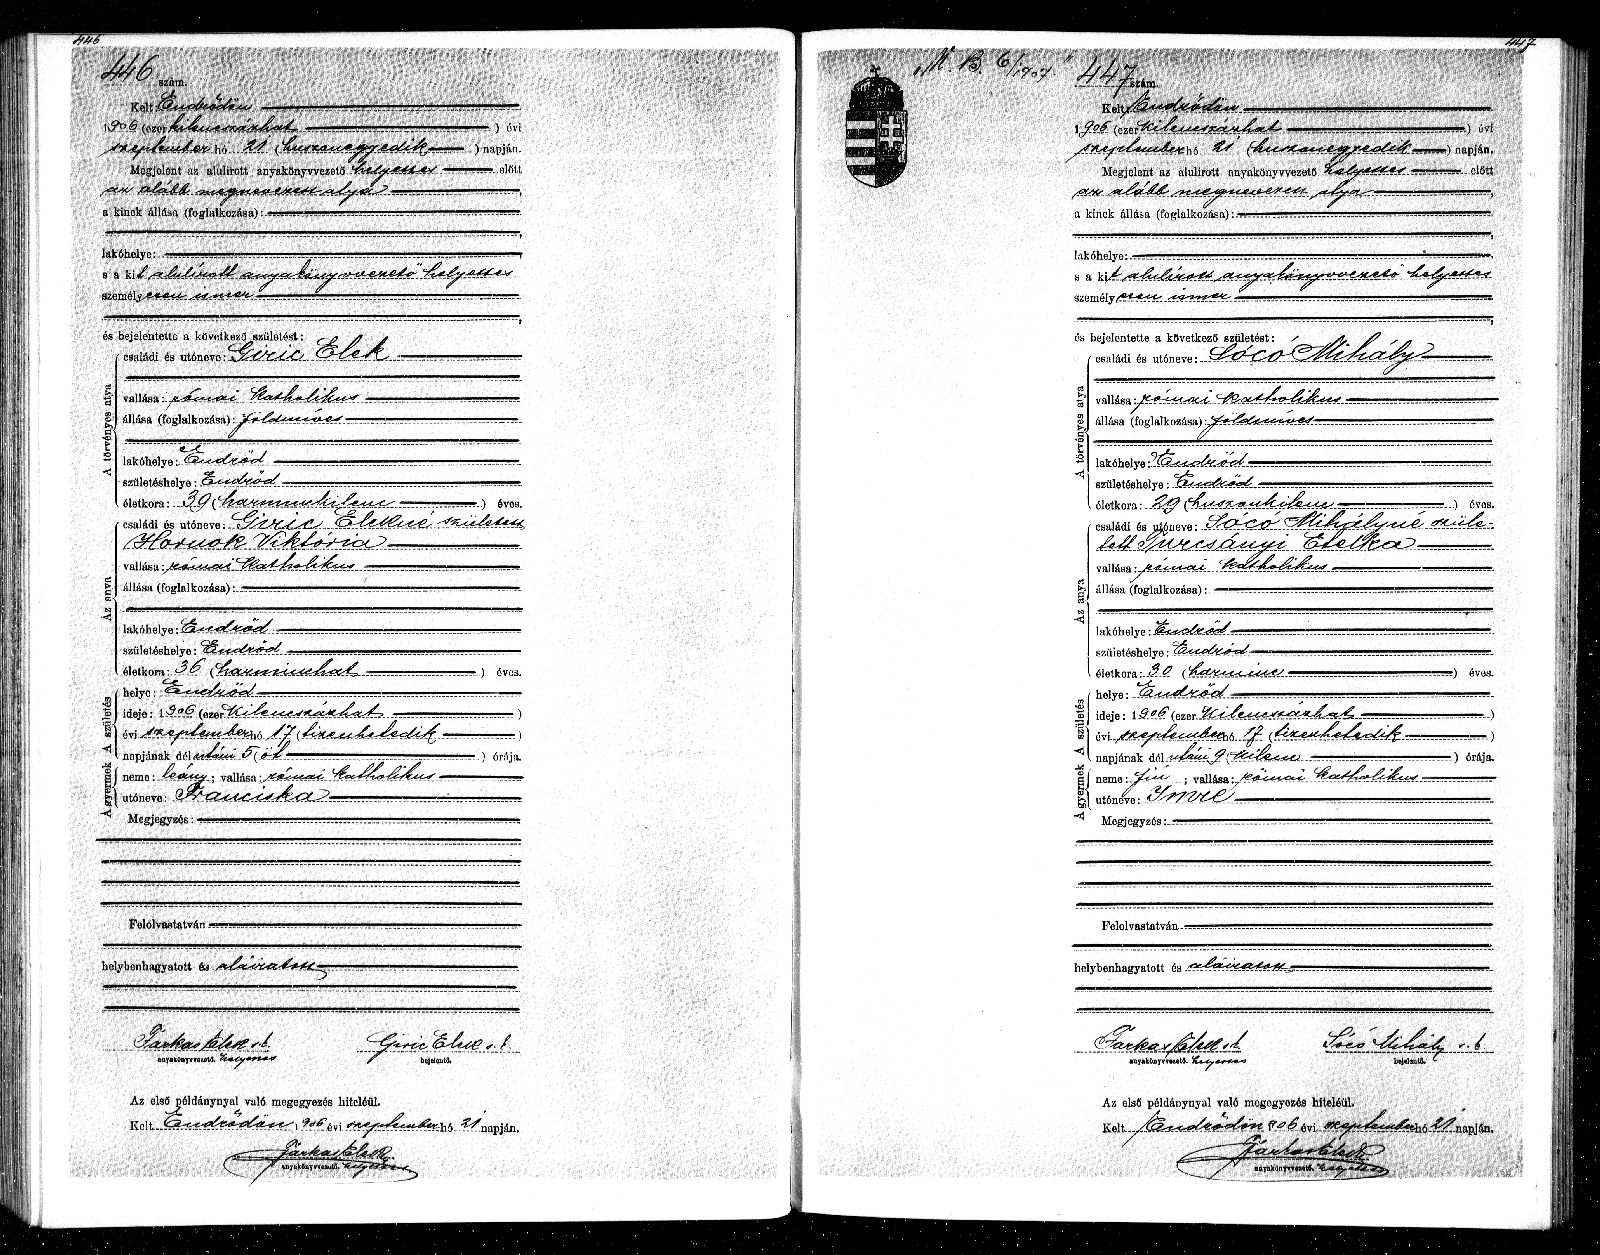 446
446 szám.
Kelt Endrődön
1906 (ezer kilencszázhat ) évi
szeptember hó 21 (huszonegyedik ) napján.
Megjelent az alulirott anyakönyvvezető helyettes előtt
az alább megnevezett atya ,
a kinek állása (foglalkozása):
,
lakóhelye:
s a kit alulírott anyakönyvvezető helyettes
személyesen ismer
,
és bejelentette a következő születést:
A törvényes atya
családi és utóneve: Giricz Elek
vallása: római katholikus
állása (foglalkozása): földmíves
lakóhelye: Endrőd
születéshelye: Endrőd
életkora: 39 (harminckilenc ) éves.
Az anya
családi és utóneve: Giricz Elekné született
Hornok Viktória
vallása: római katholikus
állása (foglalkozása):
lakóhelye: Endrőd
születéshelye: Endrőd
életkora: 36 (harminchat ) éves.
A születés
helye: Endrőd
ideje: 1906 (ezer kilencszázhat )
évi szeptember hó 17 (tizenhetedik )
napjának dél utáni 5 (öt ) órája.
A gyermek
neme: leány; vallása: római katholikus
utóneve: Franciska
Megjegyzés:
Felolvastatván
helybenhagyatott és aláiratott
Farkas Elek s.k. Giricz Elek s.k.
anyakönyvvezető. helyettes bejelentő.
Az első példánynyal való megegyezés hiteléül.
Kelt Endrődön, 1906 évi szeptember hó 21 napján.
Farkas Elek
anyakönyvvezető. helyettes
447
„M. B. 6/1907."
447 szám.
Kelt Endrődön
1906 (ezer kilencszázhat ) évi
szeptember hó 21 (huszonegyedik ) napján.
Megjelent az alulirott anyakönyvvezető helyettes előtt
az alább megnevezett atya ,
a kinek állása (foglalkozása):
,
lakóhelye:
s a kit alulírott anyakönyvvezető helyettes
személyesen ismer
,
és bejelentette a következő születést:
A törvényes atya
családi és utóneve: Sócó Mihály
vallása: római katholikus
állása (foglalkozása): földmíves
lakóhelye: Endrőd
születéshelye: Endrőd
életkora: 29 (huszonkilenc ) éves.
Az anya
családi és utóneve: Sócó Mihályné szüle-
lett Turcsányi Etelka
vallása: római katholikus
állása (foglalkozása):
lakóhelye: Endrőd
születéshelye: Endrőd
életkora: 30 (harminc ) éves.
A születés
helye: Endrőd
ideje: 1906 (ezer kilencszázhat )
évi szeptember hó 17 (tizenhetedik )
napjának dél utáni 9 (kilenc ) órája.
A gyermek
neme: fiú ; vallása: római katholikus
utóneve: Imre
Megjegyzés:
Felolvastatván
helybenhagyatott és aláiratott
Farkas Elek s.k. Sócó Mihály s.k.
anyakönyvvezető. helyettes bejelentő.
Az első példánynyal való megegyezés hiteléül.
Kelt Endrődön 1906 évi szeptember hó 21 napján.
Farkas Elek
anyakönyvvezető. helyettes